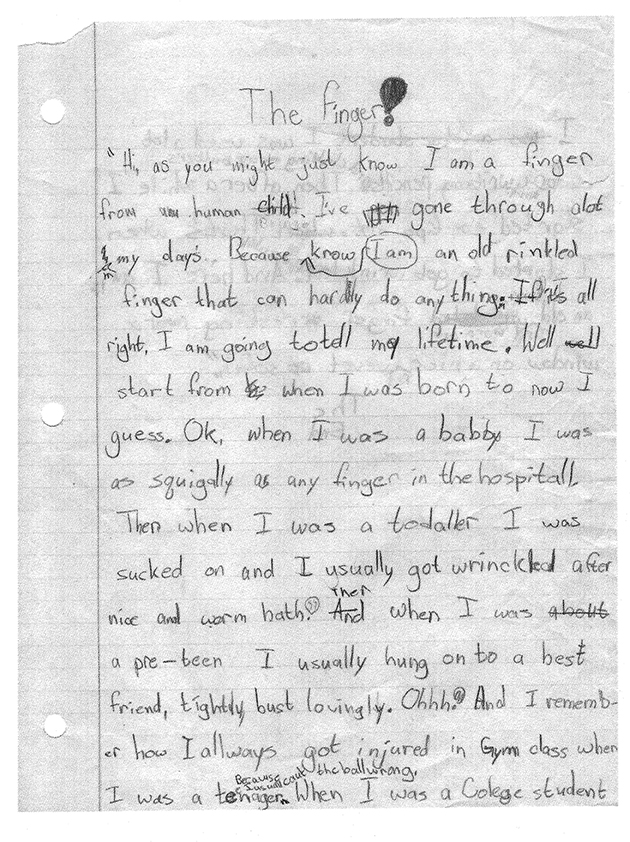 The finger!
"Hi, as you might just know I am a finger
from human child. I've gone through alot
in my days. Because know I am an old rinkled
finger that can hardly do anything. If it's all
right, I am going to tell my lifetime. Well well
start from when I was born to now I
guess. Ok, when I was a babby I was
as squigally as any finger in the hospitall.
Then when I was a todaller I was
sucked on and I usually got wrinckled after
nice and worm bath. Then
And when I was about
a pre-teen I usually hung on to a best
friend, tightly bust lovingly. Ohhh. And I rememb-
er how I allways got injured in Gym class when
Because I usually caut the ball wrong.
I was a tenager. When I was a Colege student